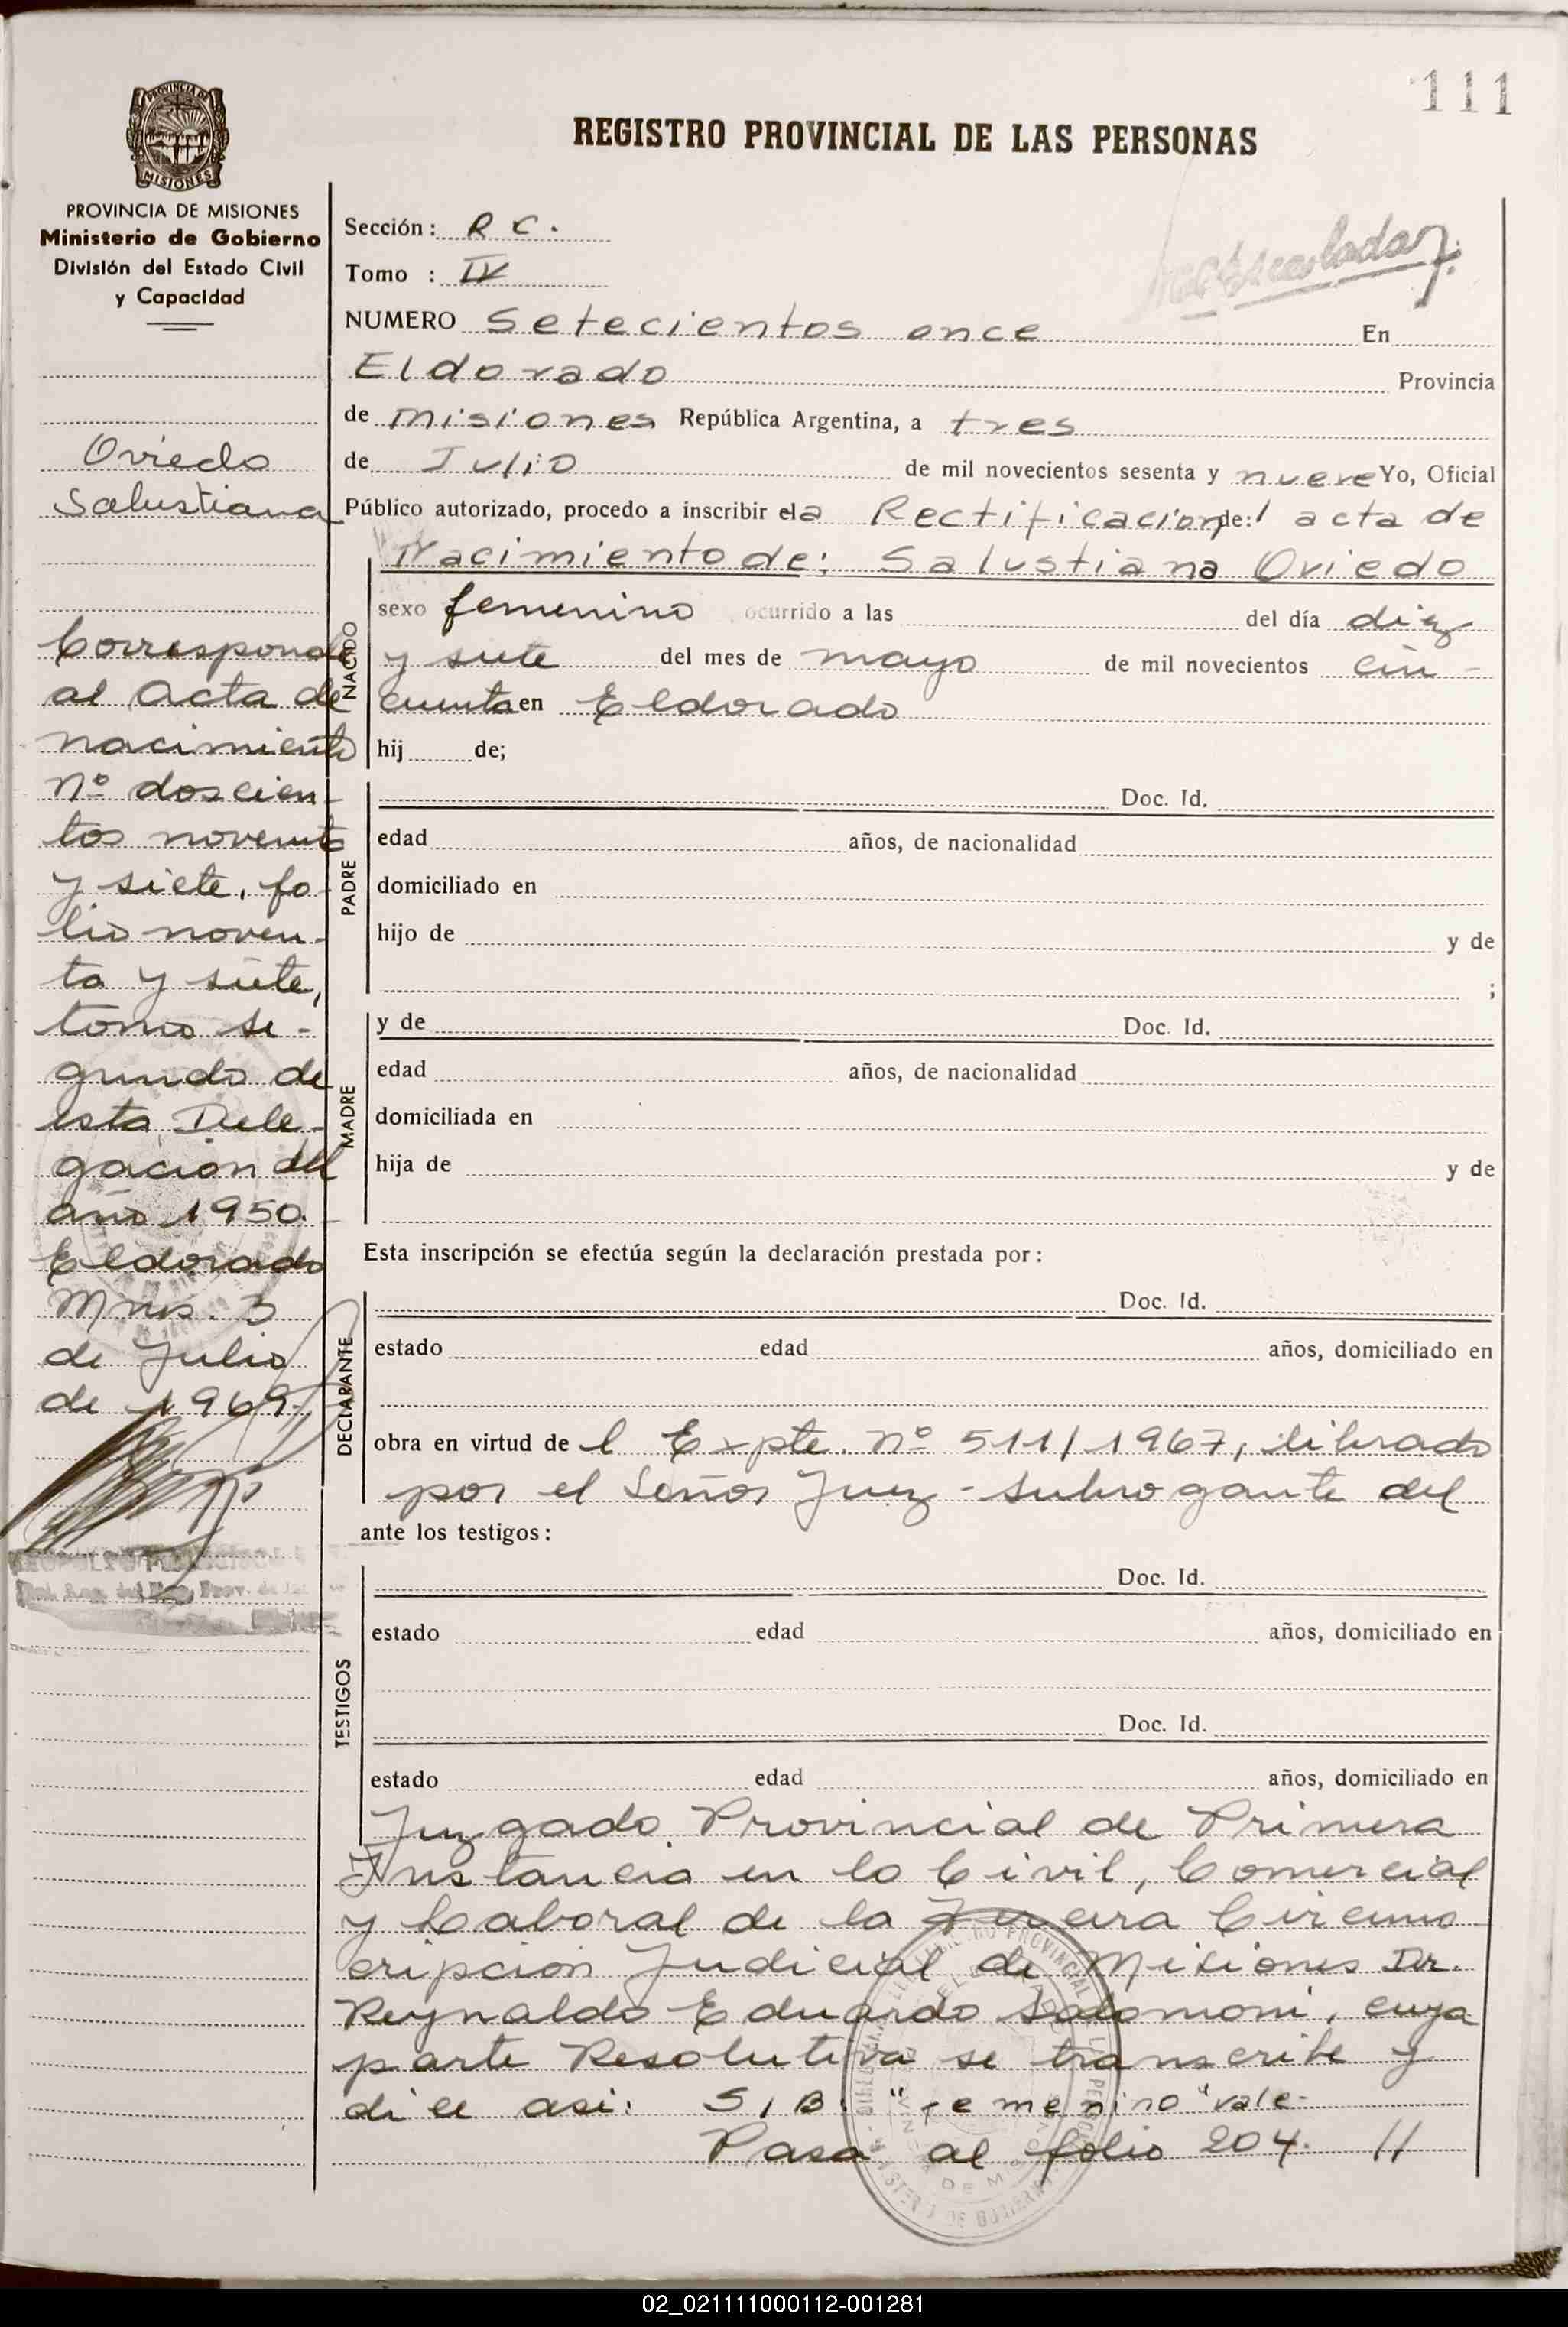 111
REGISTRO PROVINCIAL DE LAS PERSONAS
PROVINCIA DE MISIONES
Ministerio de Gobierno
División del Estado Civil
y Capacidad
Oviedo
Salustiana
Corresponde
al Acta de
nacimiento
nº doscien-
tos noventa
y siete, fo-
lio noven-
ta y siete,
tomo se-
gundo de
esta Dele-
gacion del
año 1950.
Eldorado
Mnes. 3
de Julio
de 1969.
Sección: R C.
Tomo : IV
NUMERO Setecientos once En
Eldorado Provincia
de Misiones República Argentina, a tres
de Julio de mil novecientos sesenta y nueve Yo, Oficial
Público autorizado, procedo a inscribir el a Rectificacion de: l acta de
Nacimiento de: Salustiana Oviedo
NACIDO
sexo femenino ocurrido a las del día diez
y siete del mes de mayo de mil novecientos cin-
cuenta en Eldorado
hij de;
PADRE
Doc. Id.
edad años, de nacionalidad
domiciliado en
hijo de y de
;
MADRE
y de Doc. Id.
edad años, de nacionalidad
domiciliada en
hija de y de
Esta inscripción se efectúa según la declaración prestada por:
DECLARANTE
Doc. Id.
estado edad años, domiciliado en
obra en virtud de l Expte. nº 511/1967, librado
por el Señor Juez - subrogante del
ante los testigos:
TESTIGOS
Doc. Id.
estado edad años, domiciliado en
Doc. Id.
estado edad años, domiciliado en
Juzgado Provincial de Primera
Instancia en lo Civil, Comercial
y Laboral de la Tercera Circuns-
cripcion Judicial de Misiones Dr.
Reynaldo Eduardo Salomoni, cuya
parte Resolutiva se transcribe y
dice asi: S/B: "femenino" vale-
Pasa al folio 204. //
02_021111000112-001281